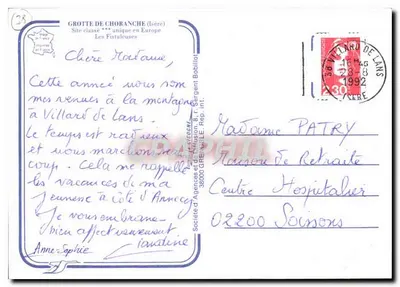 GROTTE DE CHORANCHE (Isère)
Site classé *** unique en Europe
Les Fistuleuses
Chère Madame,
Cette année nous som
mes venues à la montagne
à Villard de Lans.
Le temps est radieux
et nous marchons
coup. Cela me rappelle
les vacances de ma
jeunesse à côté d'Annecy
Je vous embrasse
bien affectueusement
Anne-Sophie
38 VILLARD DE LANS
23-8
1992
ISERE
2,30
Madame PATRY
Maison de Retraite
Centre Hospitalier
02200 Soissons